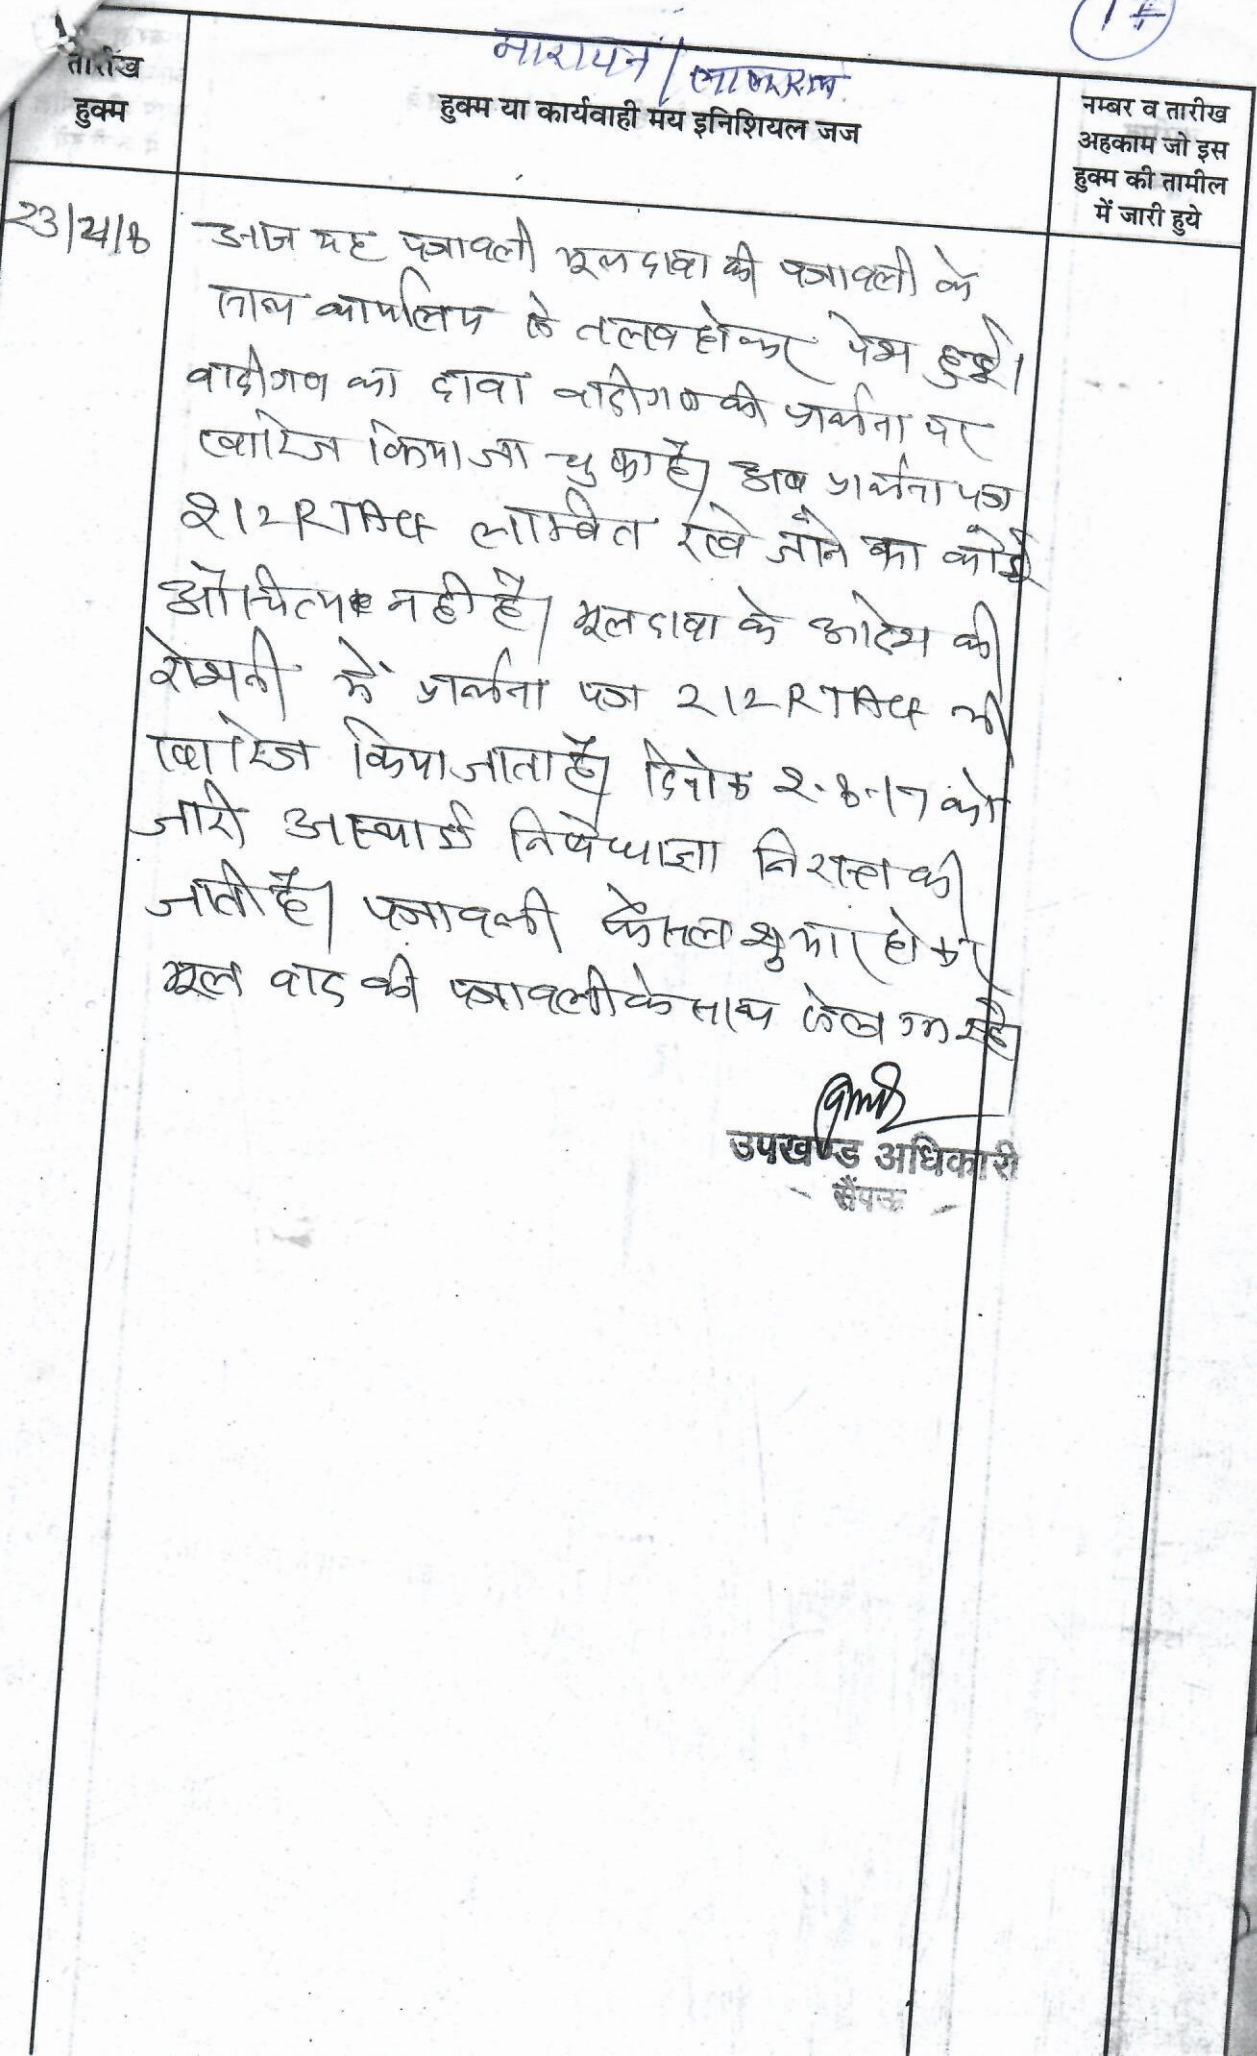 नारायन / लालाराम
तारीख
हुक्म
हुक्म या कार्यवाही मय इनिशियल जज
नम्बर व तारीख
अहकाम जो इस
हुक्म की तामील
में जारी हुये
आज यह पत्रावली मूल दावा की पत्रावली के
साथ कार्यालय से तलब होकर पेश हुई।
वादीगण का दावा वादीगण की प्रार्थना पर
खारिज किया जा चुका है। अब प्रार्थना पत्र
212 RTAct लम्बित रखे जाने का कोई
औचित्य नही है। मूल दावा के आदेश की
रोशनी में प्रार्थना पत्र 212 RTAct भी
खारिज किया जाता है। दिनांक 2-8-17 को
जारी अस्थाई निषेधाज्ञा निरस्त की
जाती है। पत्रावली फैसल शुमार होकर
मूल वाद की पत्रावली के साथ रहे।
उपखण्ड अधिकारी
सैंपऊ